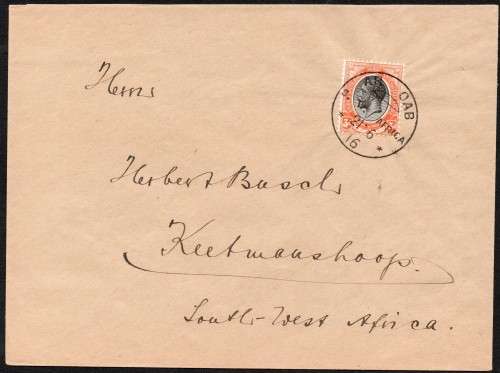 Herrn
OAB
AFRICA
21 6
16
Herbert Busch
Keetmanshoop.
South-West Africa.